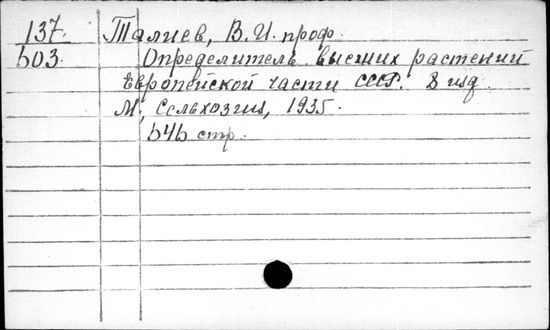 137. Талиев, В. И. проф.
603. Определитель высших растений
Европейской части СССР. 8 изд.
М., Сельхозгиз, 1935.
646 стр.